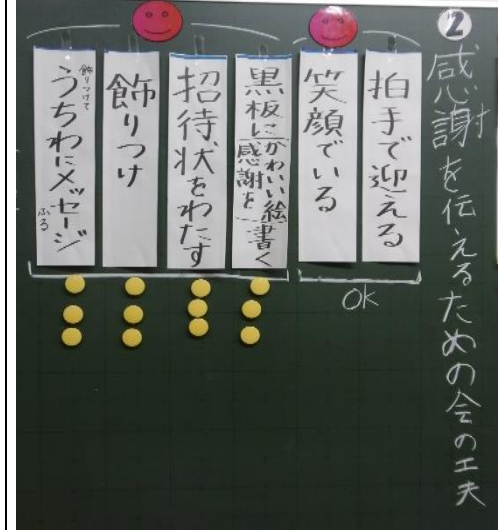 ②
感謝を伝えるための会の工夫
拍手で迎える
笑顔でいる
OK
黒板にかわいい絵書く
感謝を
招待状をわたす
飾りつけ
飾りつけて
うちわにメッセージ
ふる